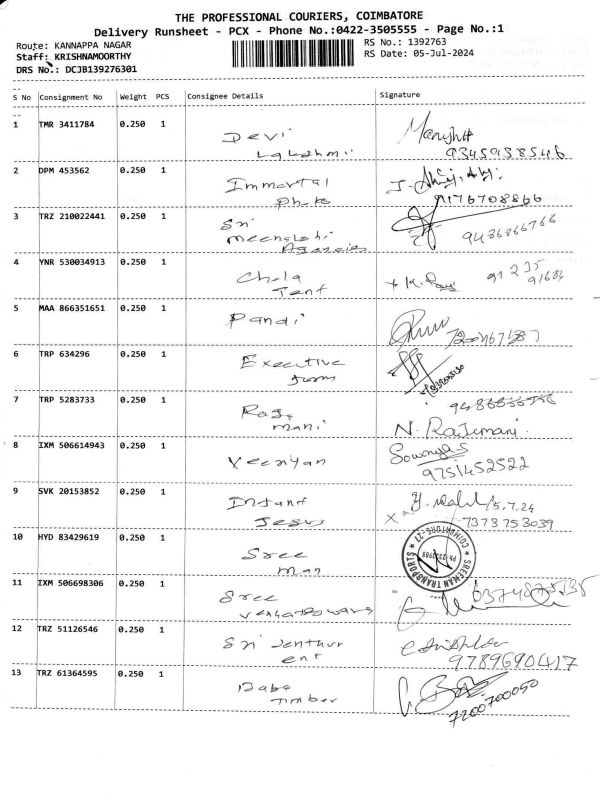 THE PROFESSIONAL COURIERS, COIMBATORE
Delivery Runsheet - PCX - Phone No.:0422-3505555 - Page No.:1
Route: KANNAPPA NAGAR RS No.: 1392763
Staff: KRISHNAMOORTHY RS Date: 05-Jul-2024
DRS No.: DCJB139276301
S No Consignment No Weight PCS Consignee Details Signature
1 TMR 3411784 0.250 1 Devi
Lakshmi 9345938546
2 DPM 453562 0.250 1 Immortal
Photo 9176708866
3 TRZ 210022441 0.250 1 Sri
Meenakshi
Agencies 9486866766
4 YNR 530034913 0.250 1 Chola
Tent
5 MAA 866351651 0.250 1 Pandi
6 TRP 634296 0.250 1 Executive
7 TRP 5283733 0.250 1 Raje
mani N. Rajemani
8 IXM 506614943 0.250 1 Veeriyan Sowmya.S
9751452522
9 SVK 20153852 0.250 1 Infant 5.7.24
Jesus X 7373753039
10 HYD 83429619 0.250 1 Sree
man SREEMAN TRANSPORTS COIMBATORE-27
11 IXM 506698306 0.250 1 Sree 6374875535
Venkateswara
12 TRZ 51126546 0.250 1 Sri Senthur
ent 9789690417
13 TRZ 61364595 0.250 1 Baba
Timber 7200700050